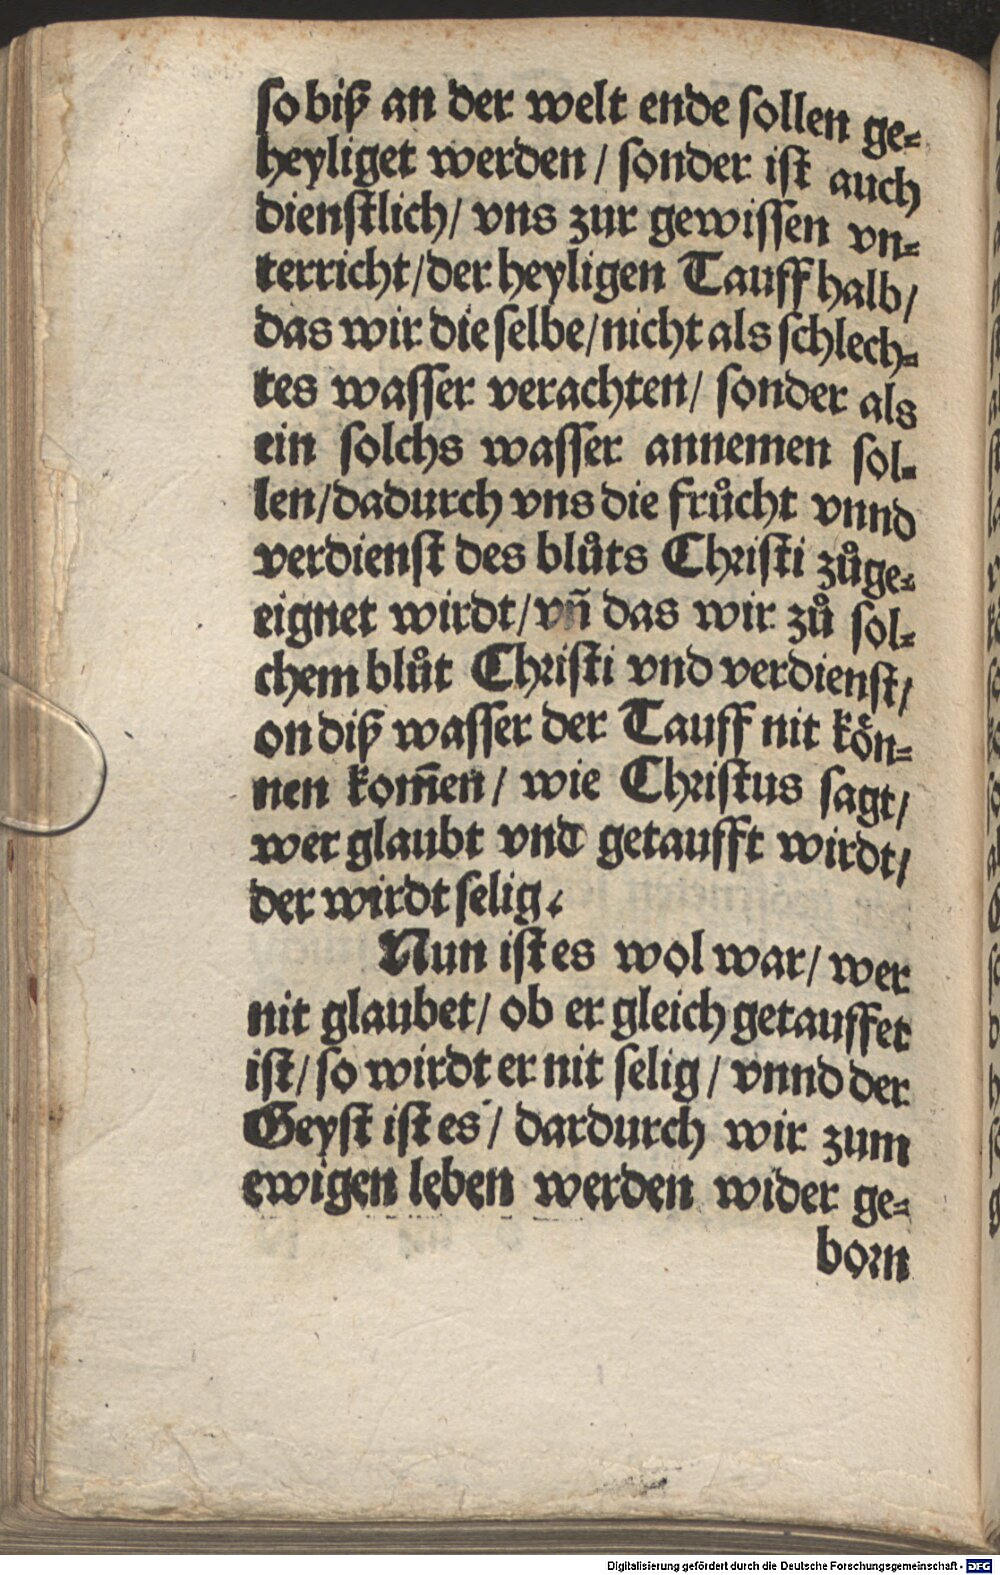 so biß an der welt ende sollen ge⸗
heyliget werden / sonder ist auch
dienstlich / vns zur gewissen vn⸗
terricht / der heyligen Tauff halb /
das wir die selbe / nicht als schlech⸗
tes wasser verachten / sonder als
ein solchs wasser annemen sol⸗
len / dadurch vns die frůcht vnnd
verdienst des blůts Christi zůge⸗
eignet wirdt / vñ das wir zů sol⸗
chem blůt Christi vnd verdienst /
on diß wasser der Tauff nit koͤn⸗
nen kom̄en / wie Christus sagt /
wer glaubt vnd getaufft wirdt /
der wirdt selig.
Nun ist es wol war / wer
nit glaubet / ob er gleich getauffet
ist / so wirdt er nit selig / vnnd der
Geyst ist es / dardurch wir zum
ewigen leben werden wider ge⸗
born
Digitalisierung gefördert durch die Deutsche Forschungsgemeinschaft - DFG